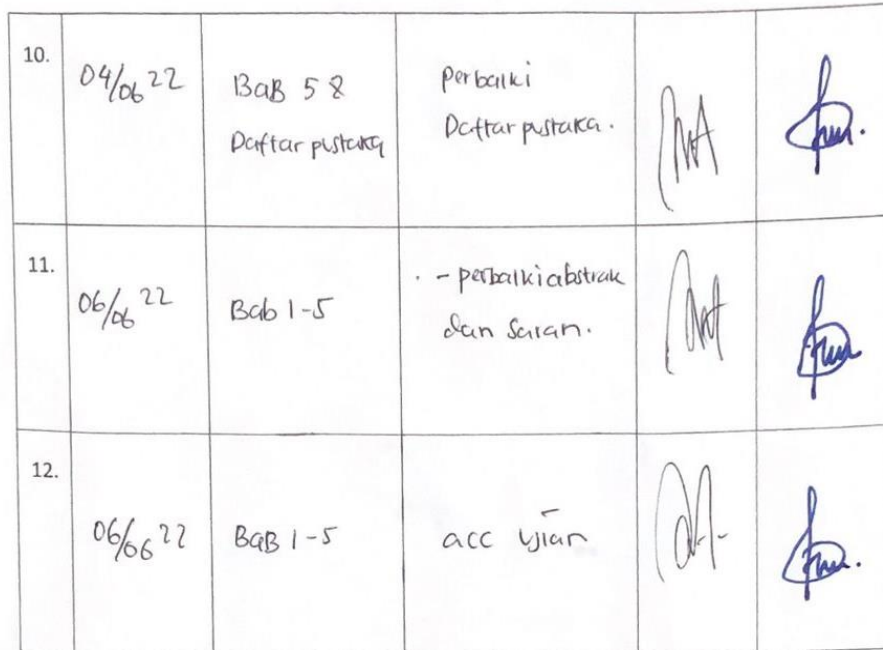 10.
04/06 22
BaB 5 &
Daftar pustaka
perbaiki
Daftar pustaka.
11.
06/06 22
Bab 1-5
- perbaiki abstrak
dan saran.
12.
06/06 22
BaB 1-5
acc ujian